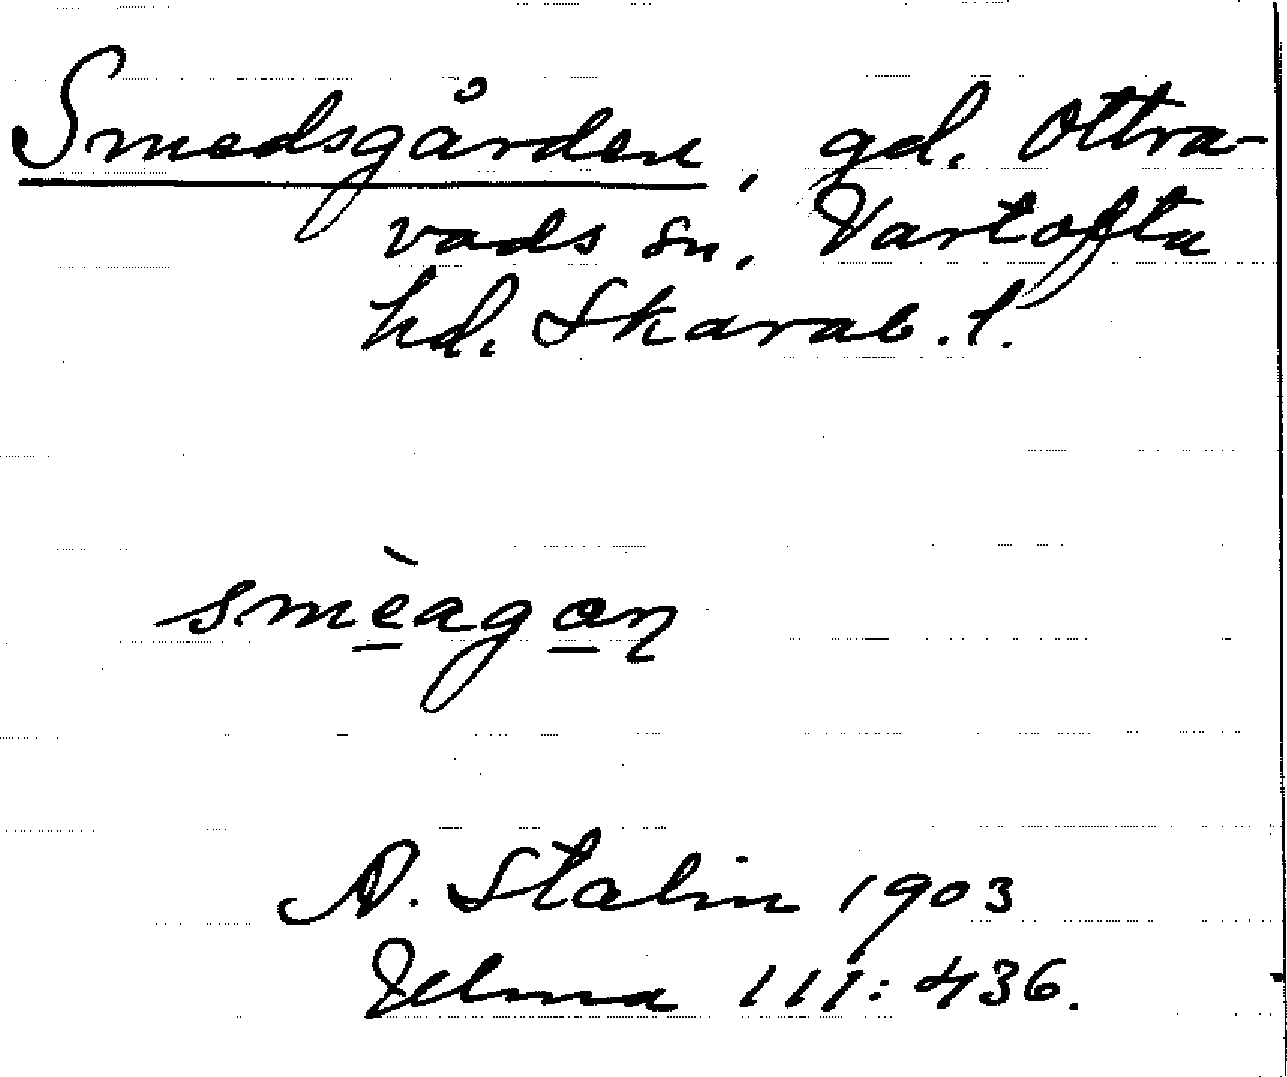 Smedsgården, gd. Ottra-
vads sn, Vartofta
hd. Skarab. l.
smèagan
A. Stalin 1903
Ulma 111:436.